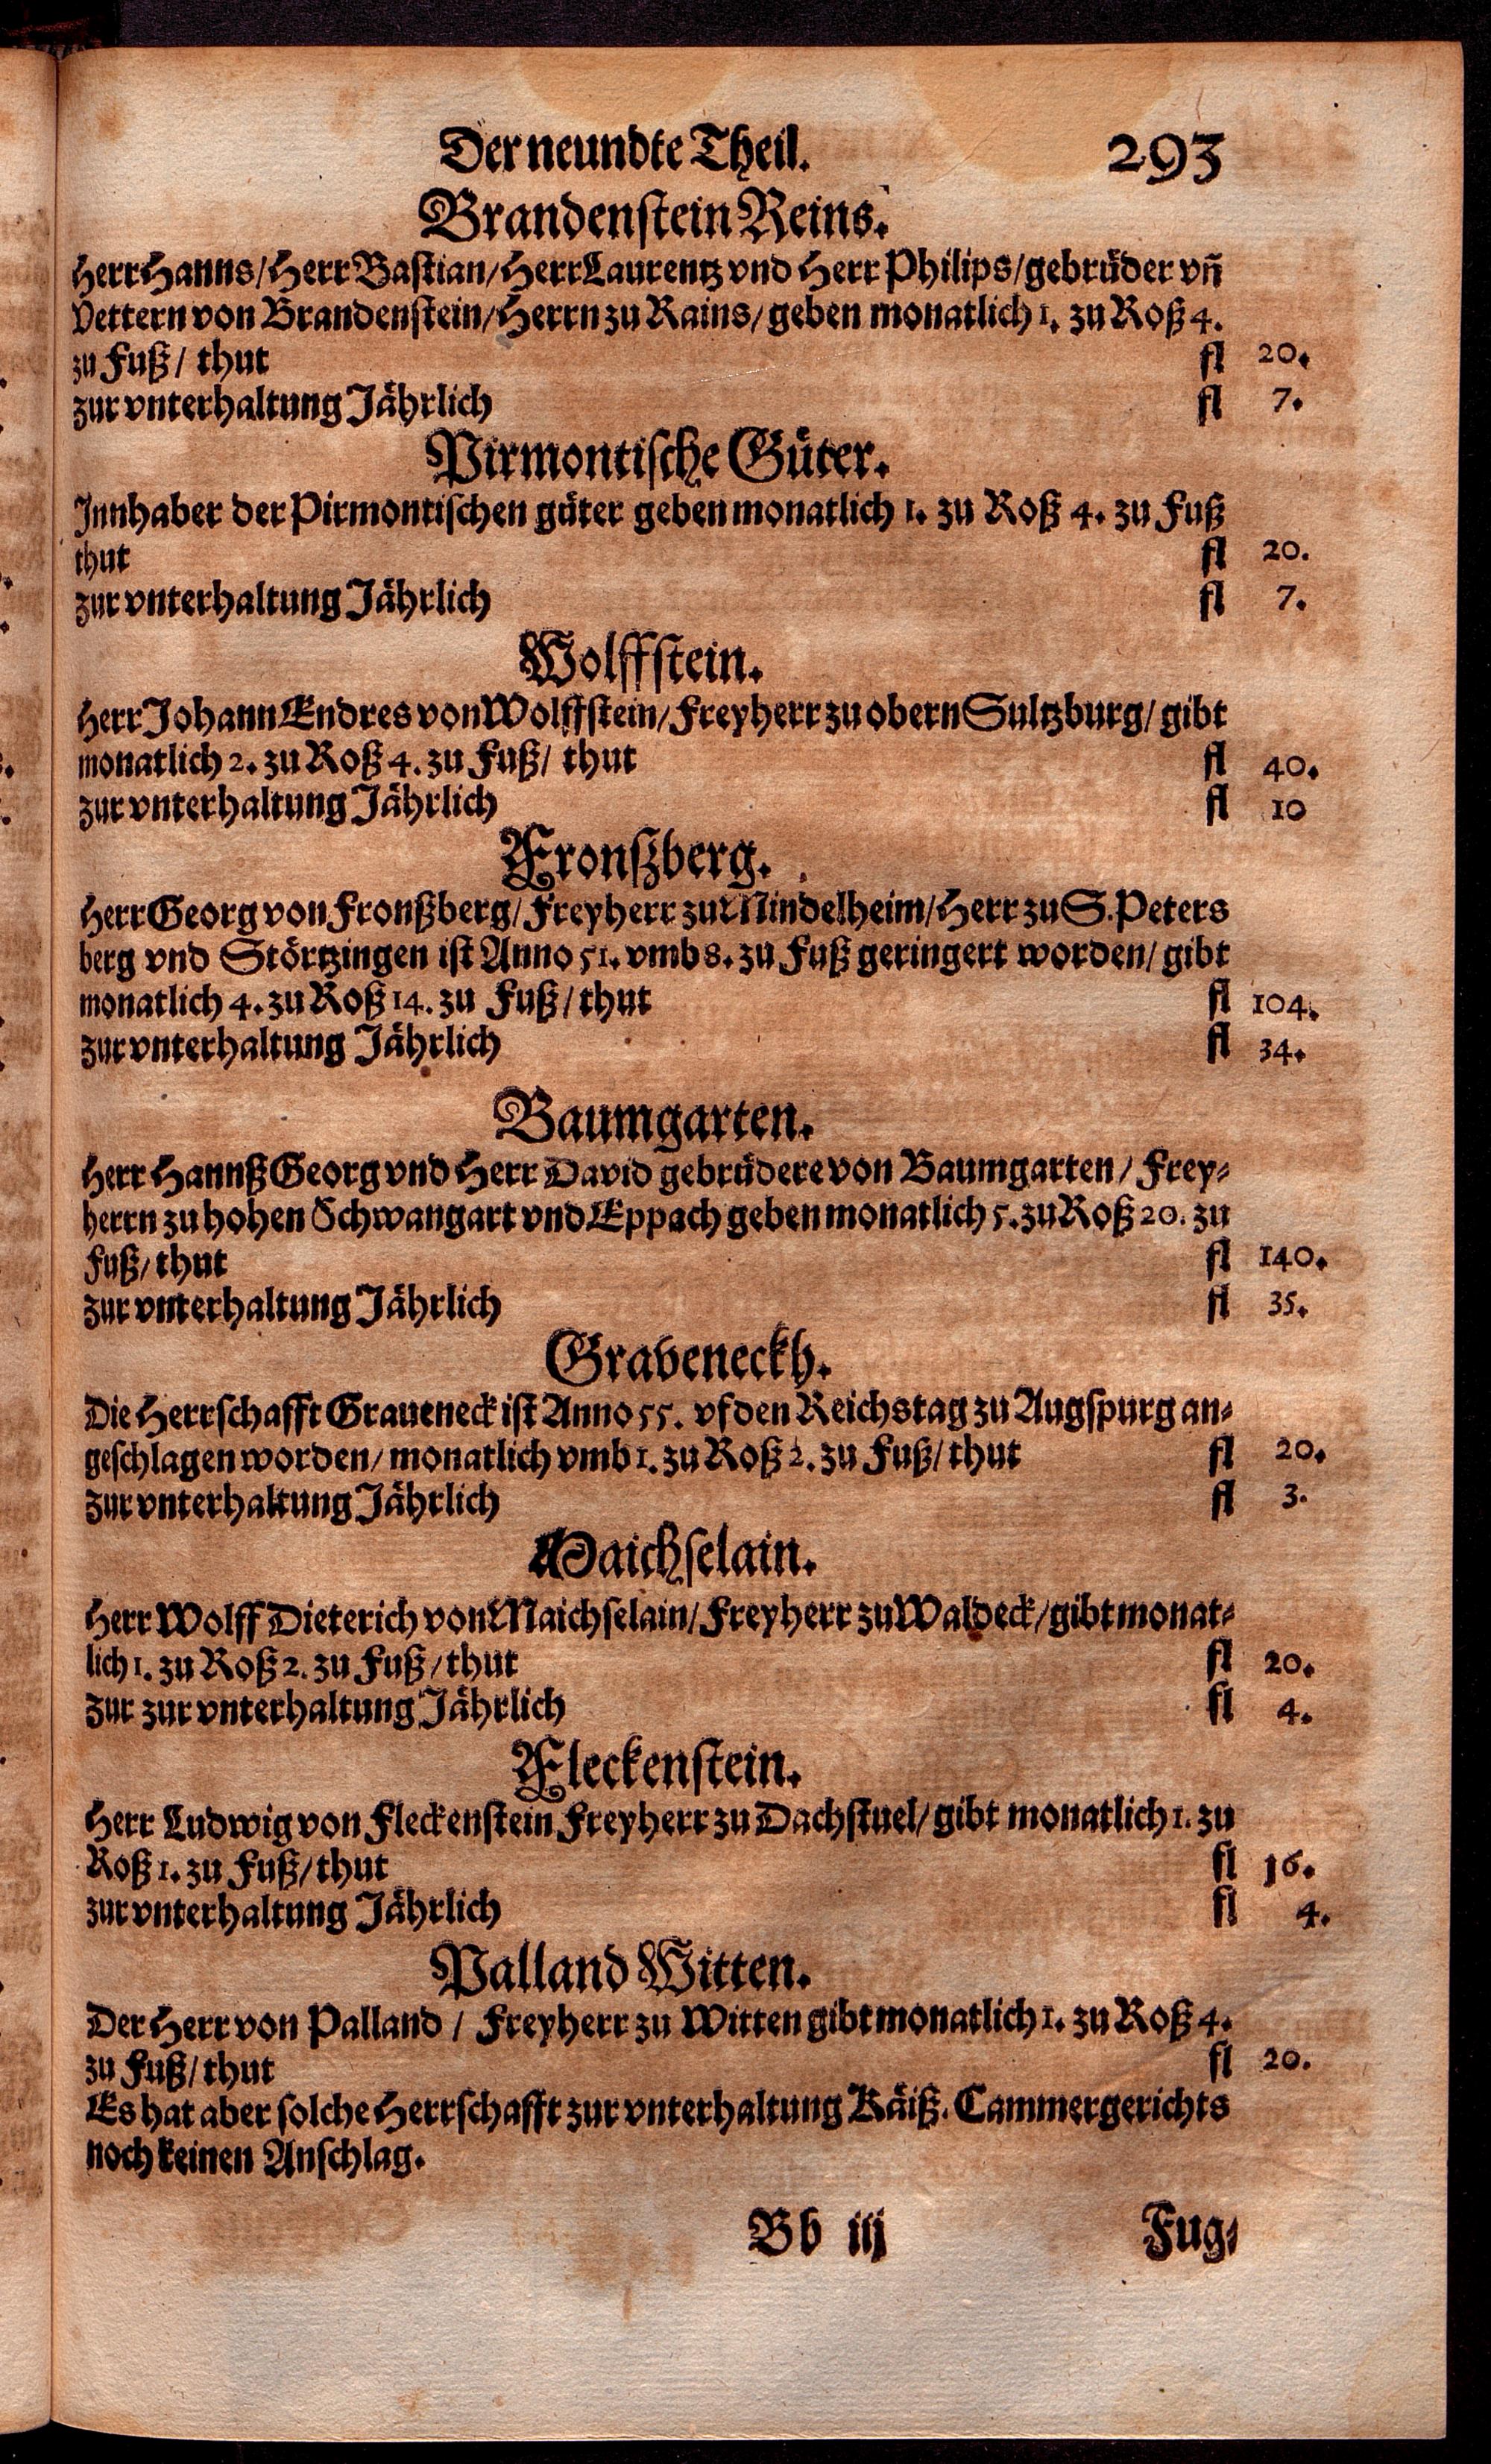 Der neundte Theil. 293
Brandenstein Reins.
Herr Hanns/ Herr Bastian/ Herr Laurentz vnd Herr Philips/ gebrüder vñ
Vettern von Brandenstein/ Herrn zu Rains/ geben monatlich 1. zu Roß 4.
zu Fuß/ thut fl 20.
zur vnterhaltung Jährlich fl 7.
Pirmontische Güter.
Innhaber der Pirmontischen güter geben monatlich 1. zu Roß 4. zu Fuß
thut fl 20.
zur vnterhaltung Jährlich fl 7.
Wolffstein.
Herr Johann Endres von Wolffstein/ Freyherr zu obern Sultzburg/ gibt
monatlich 2. zu Roß 4. zu Fuß/ thut fl 40.
zur vnterhaltung Jährlich fl 10
Fronßberg.
Herr Georg von Fronßberg/ Freyherr zu Mindelheim/ Herr zu S. Peters
berg vnd Störtzingen ist Anno 51. vmb 8. zu Fuß geringert worden/ gibt
monatlich 4. zu Roß 14. zu Fuß/ thut fl 104.
zur vnterhaltung Jährlich fl 34.
Baumgarten.
Herr Hannß Georg vnd Herr David gebrüdere von Baumgarten/ Frey-
herrn zu hohen Schwangart vnd Eppach geben monatlich 5. zu Roß 20. zu
Fuß/ thut fl 140.
zur vnterhaltung Jährlich fl 35.
Graveneckh.
Die Herrschafft Graueneck ist Anno 55. vf den Reichstag zu Augspurg an-
geschlagen worden/ monatlich vmb 1. zu Roß 2. zu Fuß/ thut fl 20.
zur vnterhaltung Jährlich fl 3.
Maichselain.
Herr Wolff Dieterich von Maichselain/ Freyherr zu Waldeck/ gibt monat-
lich 1. zu Roß 2. zu Fuß/ thut fl 20.
zur zur vnterhaltung Jährlich fl 4.
Fleckenstein.
Herr Ludwig von Fleckenstein Freyherr zu Dachstuel/ gibt monatlich 1. zu
Roß 1. zu Fuß/ thut fl 16.
zur vnterhaltung Jährlich fl 4.
Palland Witten.
Der Herr von Palland / Freyherr zu Witten gibt monatlich 1. zu Roß 4.
zu Fuß/ thut fl 20.
Es hat aber solche Herrschafft zur vnterhaltung Käiß. Cammergerichts
noch keinen Anschlag.
Bb iij Fug-